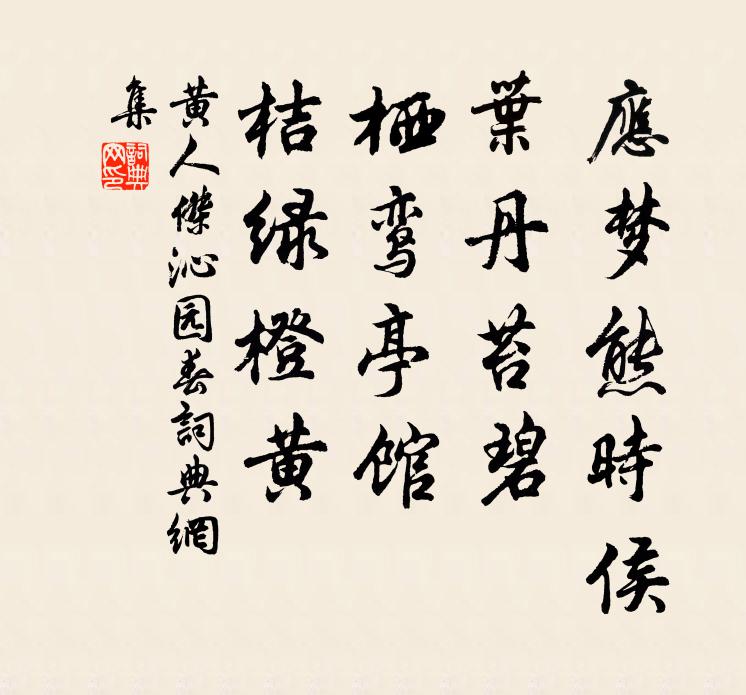 應梦熊時侯
葉丹苔碧
栖鸾亭馆
桔绿橙黄
黄人傑沁园春詞典網
集
詞典網印